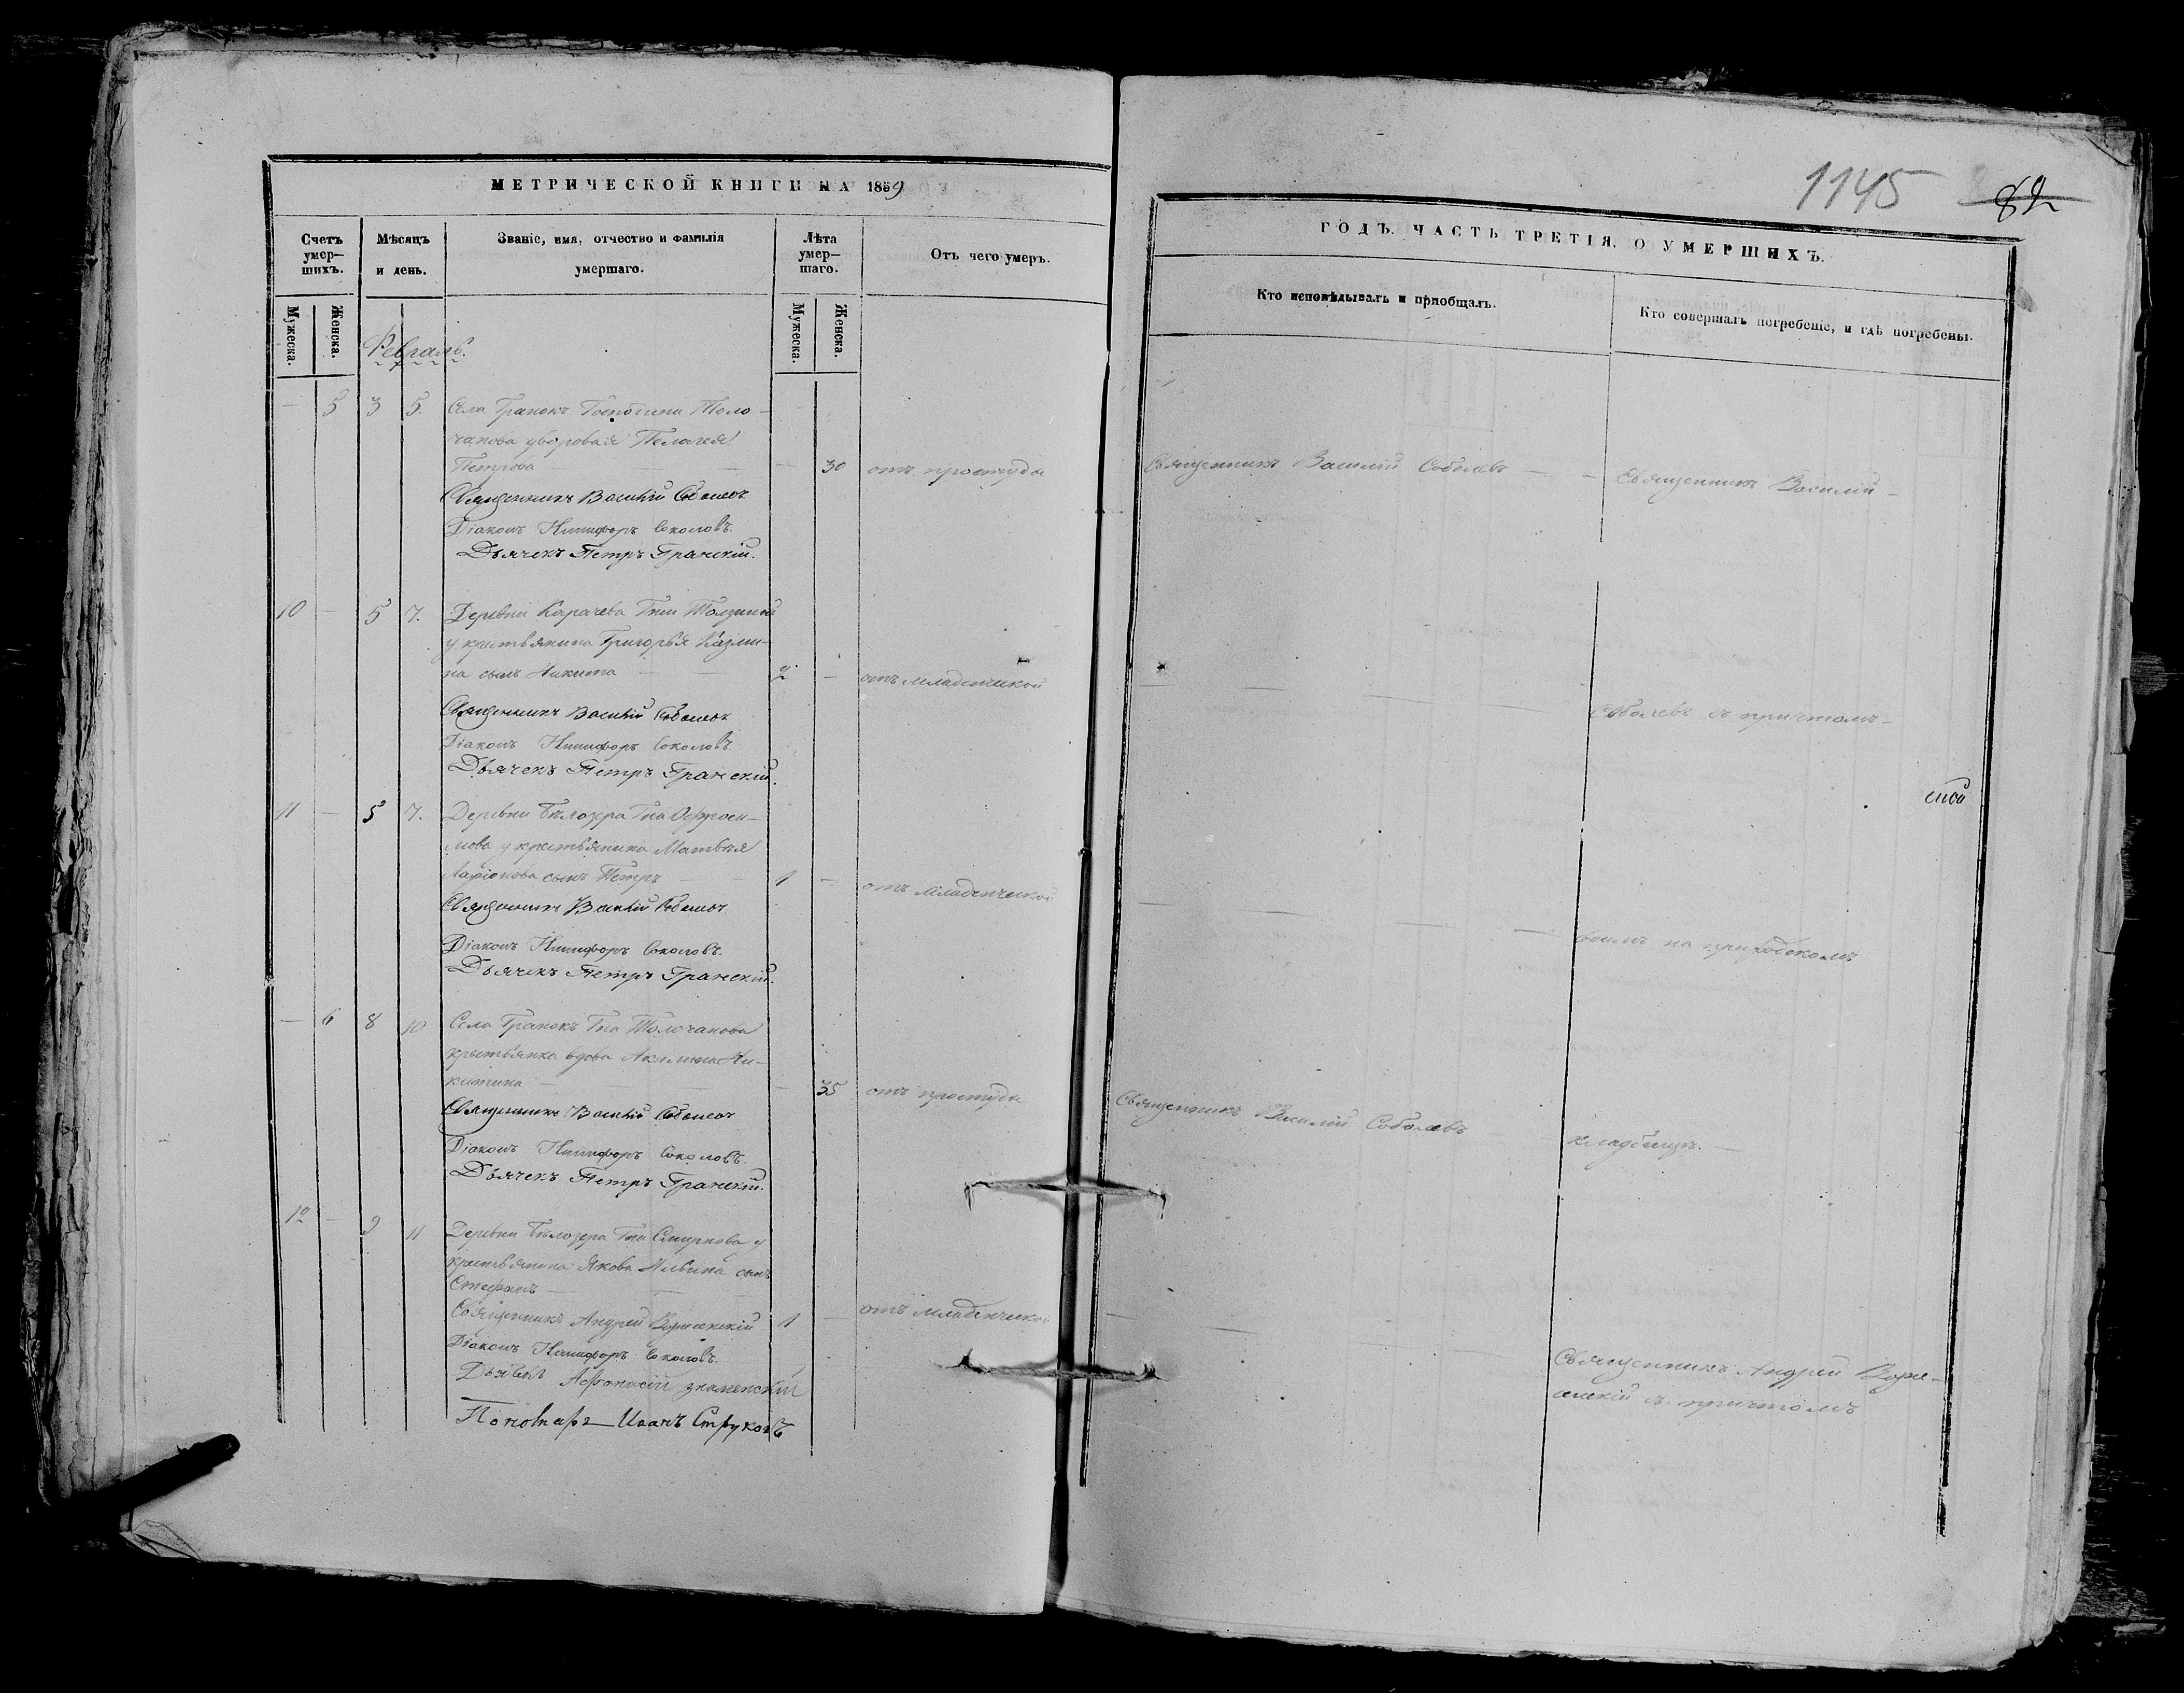 МЕТРИЧЕСКОЙ КНИГИ НА 1859
Счетъ умер-шихъ.
Мѣсяцъ и день.
Званіе, имя, отчество и фамилія умершаго.
Лѣта умер-шаго.
Отъ чего умеръ.
Мужеска.
Женска.
Мужеска.
Женска.
Февраль.
— 5 3 5. Села Гранокъ Господина Толо-
чанова дворовая Пелагея
Петрова — — — — 30 отъ простуды
Священникъ Василій Соболевъ
Діаконъ Никифоръ Соколовъ.
Дьячекъ Петръ Гранскій.
10 — 5 7. Деревни Карачева Гжи
у крестьянина Григорья
на сынъ Никита — — 2 — отъ младенческой
Священникъ Василій Соболевъ
Діаконъ Никифоръ Соколовъ
Дьячекъ Петръ Гранскій.
11 — 5 7. Деревни Бѣлозера Гна Офроси-
мова у крестьянина Матвѣя
Ларіонова сынъ Петръ — — 1 — отъ младенческой
Священникъ Василій Соболевъ
Діаконъ Никифоръ Соколовъ.
Дьячекъ Петръ Гранскій.
— 6 8 10 Села Гранокъ Гна Толочанова
крестьянка вдова Акилина Ни-
китина — — — — 35 отъ простуды
Священникъ Василій Соболевъ
Діаконъ Никифоръ Соколовъ.
Дьячекъ Петръ Гранскій.
12 — 9 11 Деревни Бѣлозера Гна Смирнова у
крестьянина Якова Ильина сынъ
Стефанъ — —
Священникъ Андрей 1 — отъ младенческой
Діаконъ Никифоръ Соколовъ.
Дьячекъ Афонасій знаменскій
Пономарь Иванъ Струковъ
1145 82
ГОДЪ. ЧАСТЬ ТРЕТІЯ. О УМЕРШИХЪ.
Кто исповѣдывалъ и пріобщалъ.
Кто совершалъ погребеніе, и гдѣ погребены.
Священникъ Василій Соболевъ — —
Священникъ Василій —
Соболевъ съ причтомъ —
своимъ на приходскомъ
Священникъ Василій Соболевъ — —
кладбищѣ. —
Священникъ Андрей
съ причтомъ